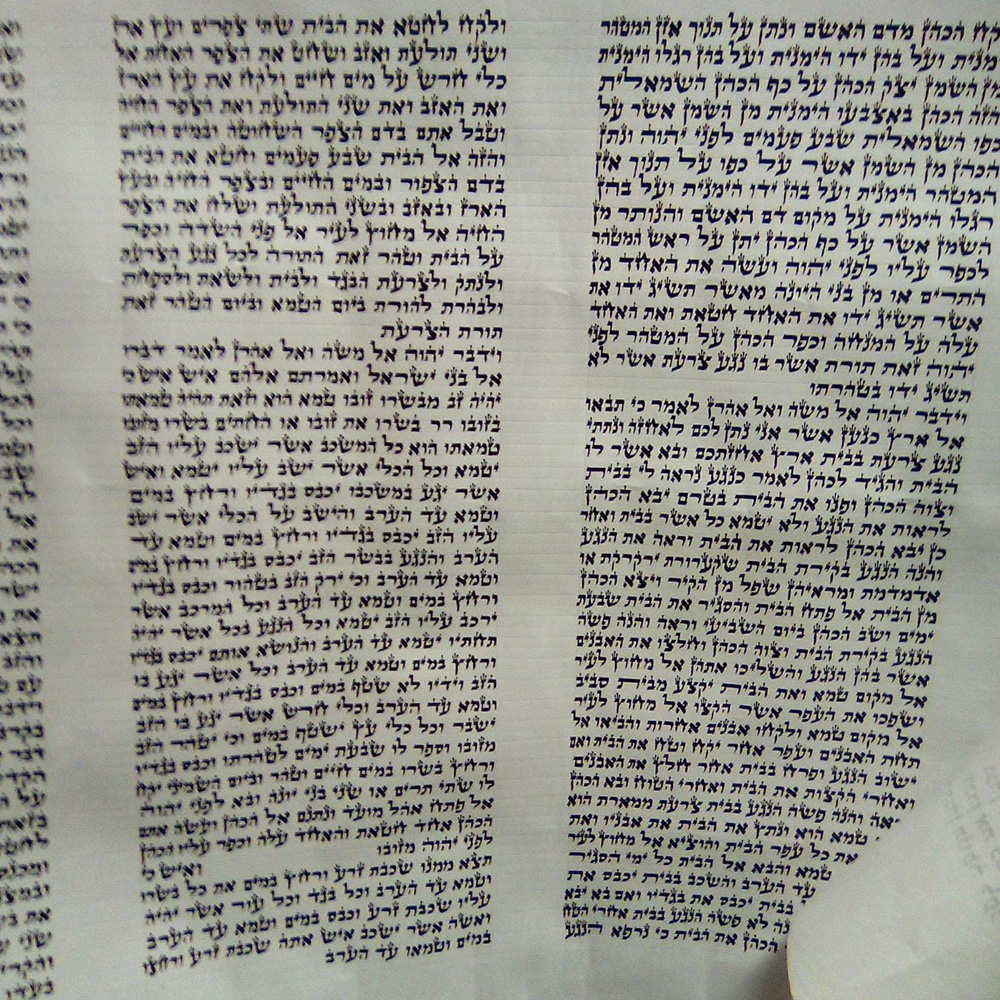 הכהן מדם האשם ונתן על תנוך אזן המטהר
הימנית ועל בהן ידו הימנית ועל בהן רגלו הימנית
מן השמן יצק הכהן על כף הכהן השמאלית
והזה הכהן באצבעו הימנית מן השמן אשר על
כפו השמאלית שבע פעמים לפני יהוה ונתן
הכהן מן השמן אשר על כפו על תנוך אזן
המטהר הימנית ועל בהן ידו הימנית ועל בהן
רגלו הימנית על מקום דם האשם והנותר מן
השמן אשר על כף הכהן יתן על ראש המטהר
לכפר עליו לפני יהוה ועשה את האחד מן
התרים או מן בני היונה מאשר תשיג ידו את
אשר תשיג ידו את האחד חטאת ואת האחד
עלה על המנחה וכפר הכהן על המטהר לפני
יהוה זאת תורת אשר בו נגע צרעת אשר לא
תשיג ידו בטהרתו
וידבר יהוה אל משה ואל אהרן לאמר כי תבאו
אל ארץ כנען אשר אני נתן לכם לאחזה ונתתי
נגע צרעת בבית ארץ אחזתכם ובא אשר לו
הבית והגיד לכהן לאמר כנגע נראה לי בבית
וצוה הכהן ופנו את הבית בטרם יבא הכהן
לראות את הנגע ולא יטמא כל אשר בבית ואחר
כן יבא הכהן לראות את הבית וראה את הנגע
והנה הנגע בקירת הבית שקערורת ירקרקת או
אדמדמת ומראיהן שפל מן הקיר ויצא הכהן
מן הבית אל פתח הבית והסגיר את הבית שבעת
ימים ושב הכהן ביום השביעי וראה והנה פשה
הנגע בקירת הבית וצוה הכהן וחלצו את האבנים
אשר בהן הנגע והשליכו אתהן אל מחוץ לעיר
אל מקום טמא ואת הבית יקצע מבית סביב
ושפכו את העפר אשר הקצו אל מחוץ לעיר
אל מקום טמא ולקחו אבנים אחרות והביאו אל
תחת האבנים ועפר אחר יקח וטח את הבית ואם
ישוב הנגע ופרח בבית אחר חלץ את האבנים
ואחרי הקצות את הבית ואחרי הטוח ובא הכהן
וראה והנה פשה הנגע בבית צרעת ממארת הוא
טמא הוא ונתץ את הבית את אבניו ואת
את כל עפר הבית והוציא אל מחוץ לעיר
טמא והבא אל הבית כל ימי הסגיר
עד הערב והשכב בבית יכבס את
בבית יכבס את בגדיו ואם בא יבא
לא פשה הנגע בבית אחרי הטח
הכהן את הבית כי נרפא הנגע
ולקח לחטא את הבית שתי צפרים ועץ ארז
ושני תולעת ואזב ושחט את הצפר האחת אל
כלי חרש על מים חיים ולקח את עץ הארז
ואת האזב ואת שני התולעת ואת הצפר החיה
וטבל אתם בדם הצפר השחוטה ובמים החיים
והזה אל הבית שבע פעמים וחטא את הבית
בדם הצפור ובמים החיים ובצפר החיה ובעץ
הארז ובאזב ובשני התולעת ושלח את הצפר
החיה אל מחוץ לעיר אל פני השדה וכפר
על הבית וטהר זאת התורה לכל נגע הצרעת
ולנתק ולצרעת הבגד ולבית ולשאת ולספחת
ולבהרת להורת ביום הטמא וביום הטהר זאת
תורת הצרעת
וידבר יהוה אל משה ואל אהרן לאמר דברו
אל בני ישראל ואמרתם אלהם איש איש כי
יהיה זב מבשרו זובו טמא הוא וזאת תהיה טמאתו
בזובו רר בשרו את זובו או החתים בשרו מזובו
טמאתו הוא כל המשכב אשר ישכב עליו הזב
יטמא וכל הכלי אשר ישב עליו יטמא ואיש
אשר יגע במשכבו יכבס בגדיו ורחץ במים
וטמא עד הערב והישב על הכלי אשר ישב
עליו הזב יכבס בגדיו ורחץ במים וטמא עד
הערב והנגע בבשר הזב יכבס בגדיו ורחץ במים
וטמא עד הערב וכי ירק הזב בטהור וכבס בגדיו
ורחץ במים וטמא עד הערב וכל המרכב אשר
ירכב עליו הזב יטמא וכל הנגע בכל אשר יהיה
תחתיו יטמא עד הערב והנושא אותם יכבס בגדיו
ורחץ במים וטמא עד הערב וכל אשר יגע בו
הזב וידיו לא שטף במים וכבס בגדיו ורחץ במים
וטמא עד הערב וכלי חרש אשר יגע בו הזב
ישבר וכל כלי עץ ישטף במים וכי יטהר הזב
מזובו וספר לו שבעת ימים לטהרתו וכבס בגדיו
ורחץ בשרו במים חיים וטהר וביום השמיני יקח
לו שתי תרים או שני בני יונה ובא לפני יהוה
אל פתח אהל מועד ונתנם אל הכהן ועשה אתם
הכהן אחד חטאת והאחד עלה וכפר עליו הכהן
לפני יהוה מזובו ואיש כי
תצא ממנו שכבת זרע ורחץ במים את כל בשרו
וטמא עד הערב וכל בגד וכל עור אשר יהיה
עליו שכבת זרע וכבס במים וטמא עד הערב
ואשה אשר ישכב איש אתה שכבת זרע ורחצו
במים וטמאו עד הערב